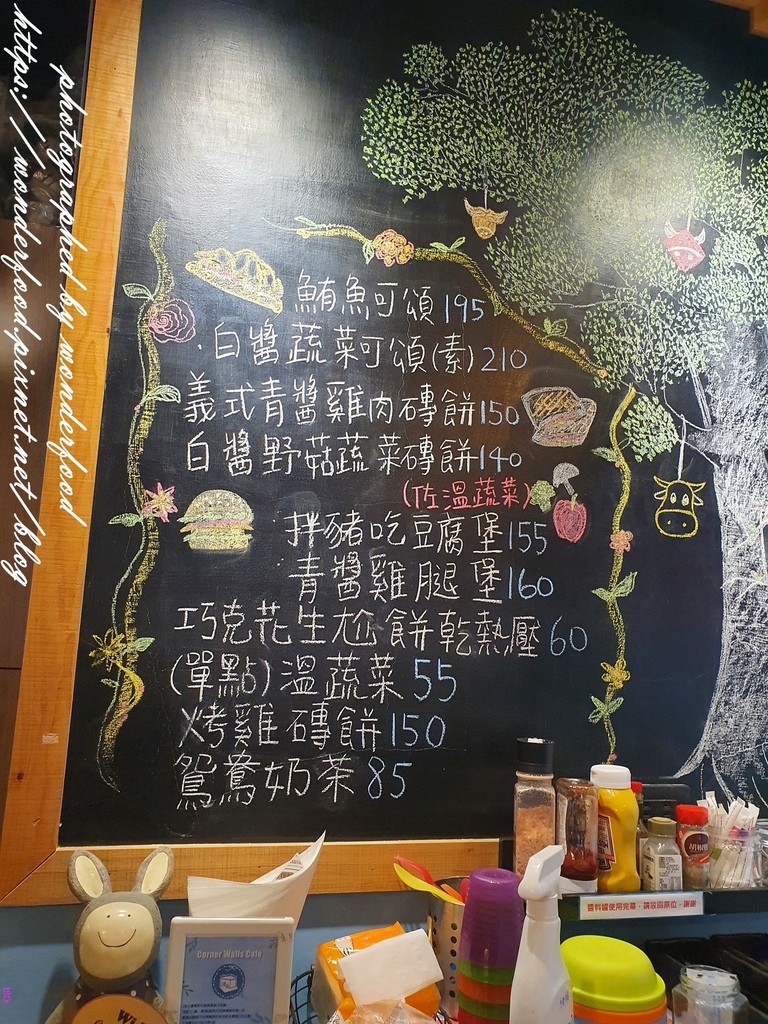 photographed by wonderfood
https://wonderfood.pixnet.net/blog
鮪魚可頌195
·白醬蔬菜可頌(素)210
義式青醬雞肉磚餅150
白醬野菇蔬菜磚餅140
(佐溫蔬菜)
拌豬吃豆腐堡155
青醬雞腿堡160
巧克花生尬餅乾熱壓60
(單點)溫蔬菜55
烤雞磚餅150
鴛鴦奶茶85
醬料罐使用完畢，請放回原位，謝謝
Corner Walls Cafe